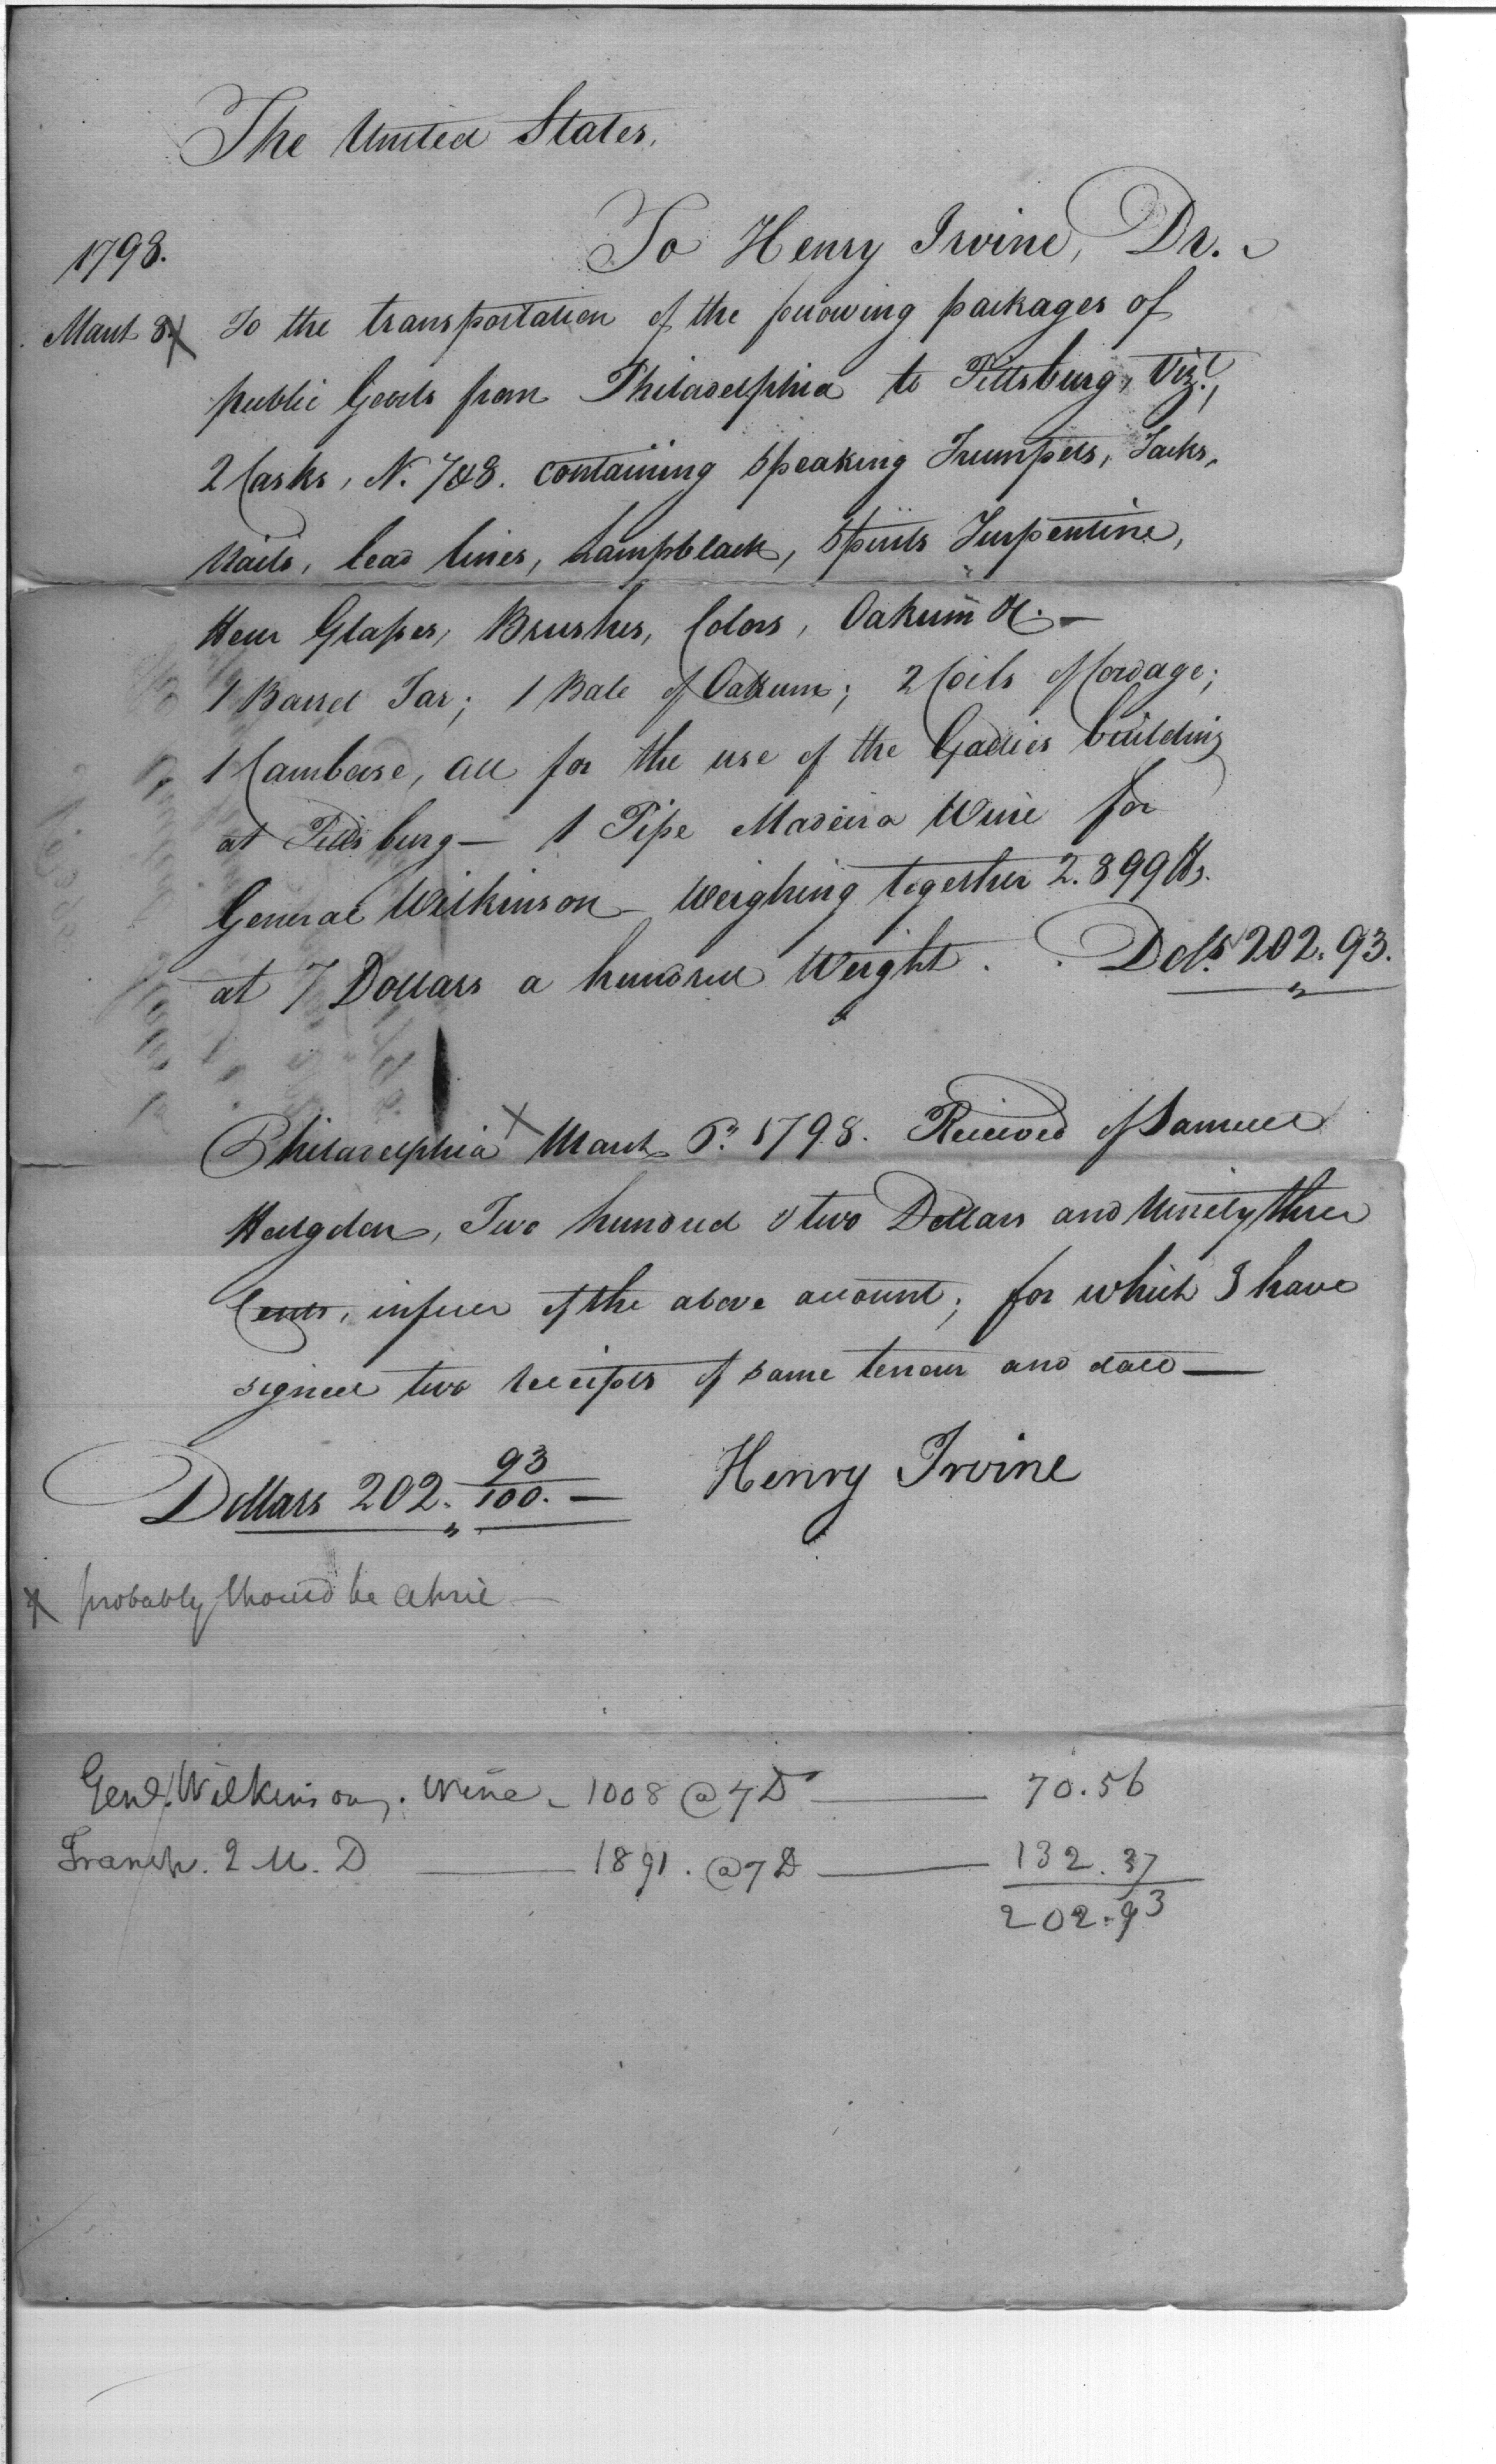 The United States,
To Henry Irvine, Dr.
1798.
March 8. x To the transportation of the following packages of
public Goods from Philadelphia to Pittsburg, Viz.t,
2 Casks, N. 7 & 8. containing Speaking Trumpets, Tacks,
Nails, lead lines, Lampblack, Spirits Turpentine,
Hour Glasses, Brushes, Colors, Oakum &c. —
1 Barrel Tar; 1 Bale of Oakum; 2 Coils of Cordage;
1 Camboose, all for the use of the Gallies building
at Pittsburg — 1 Pipe Madeira Wine for
General Wilkinson — Weighing together 2.899 lbs.
at 7 Dollars a hundred Weight . . Dolls. 202. 93.
Philadelphia x March 1798. Received of Samuel
Hodgdon, Two hundred & two Dollars and Ninety three
Cents, in full of the above account; for which I have
signed two receipts of same tenour and date —
Dollars 202. 93/100. — Henry Irvine
x probably should be April —
Genl. Wilkinson, . Wine - 1008 @ 7 D — 70.56
Transp. Q M. D — 1891. @ 7 D — 132.37
202.93